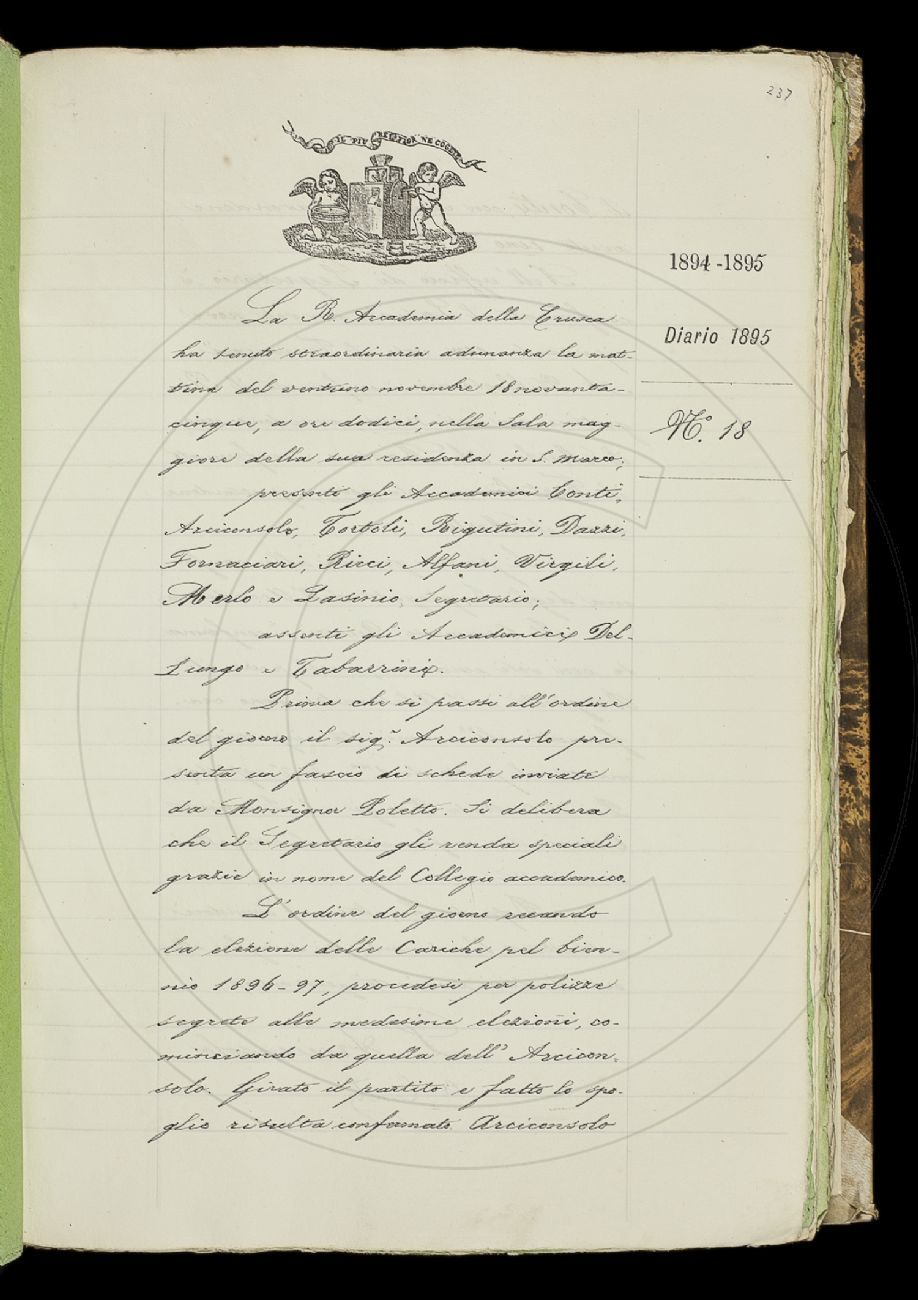 237
IL PIÙ BEL FIOR NE COGLIE
1894-1895
Diario 1895
N.° 18
La R. Accademia della Crusca
ha tenuto straordinaria adunanza la mat-
tina del ventuno novembre 18novanta-
cinque, a ore dodici, nella Sala mag-
giore della sua residenza in S. Marco;
presenti gli Accademici Conti,
Arciconsolo, Tortoli, Rigutini, Dazzi,
Fornaciari, Ricci, Alfani, Virgili,
Merlo e Lasinio, Segretario;
assenti gli Accademici Del-
Lungo e Tabarrini.
Prima che si passi all'ordine
del giorno il sig.r Arciconsolo pre-
senta un fascio di schede inviate
da Monsignor Poletto. Si delibera
che il Segretario gli renda speciali
grazie in nome del Collegio accademico.
L'ordine del giorno recando
la elezione delle Cariche pel bien-
nio 1896-97, procedesi per polizze
segrete alle medesime elezioni, co-
minciando da quella dell'Arcicon-
solo. Girato il partito e fatto lo spo-
glio risulta confermato Arciconsolo